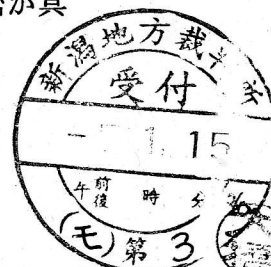 が真
新潟地方裁判所
受付
15
午前後 時 分
(モ)第3